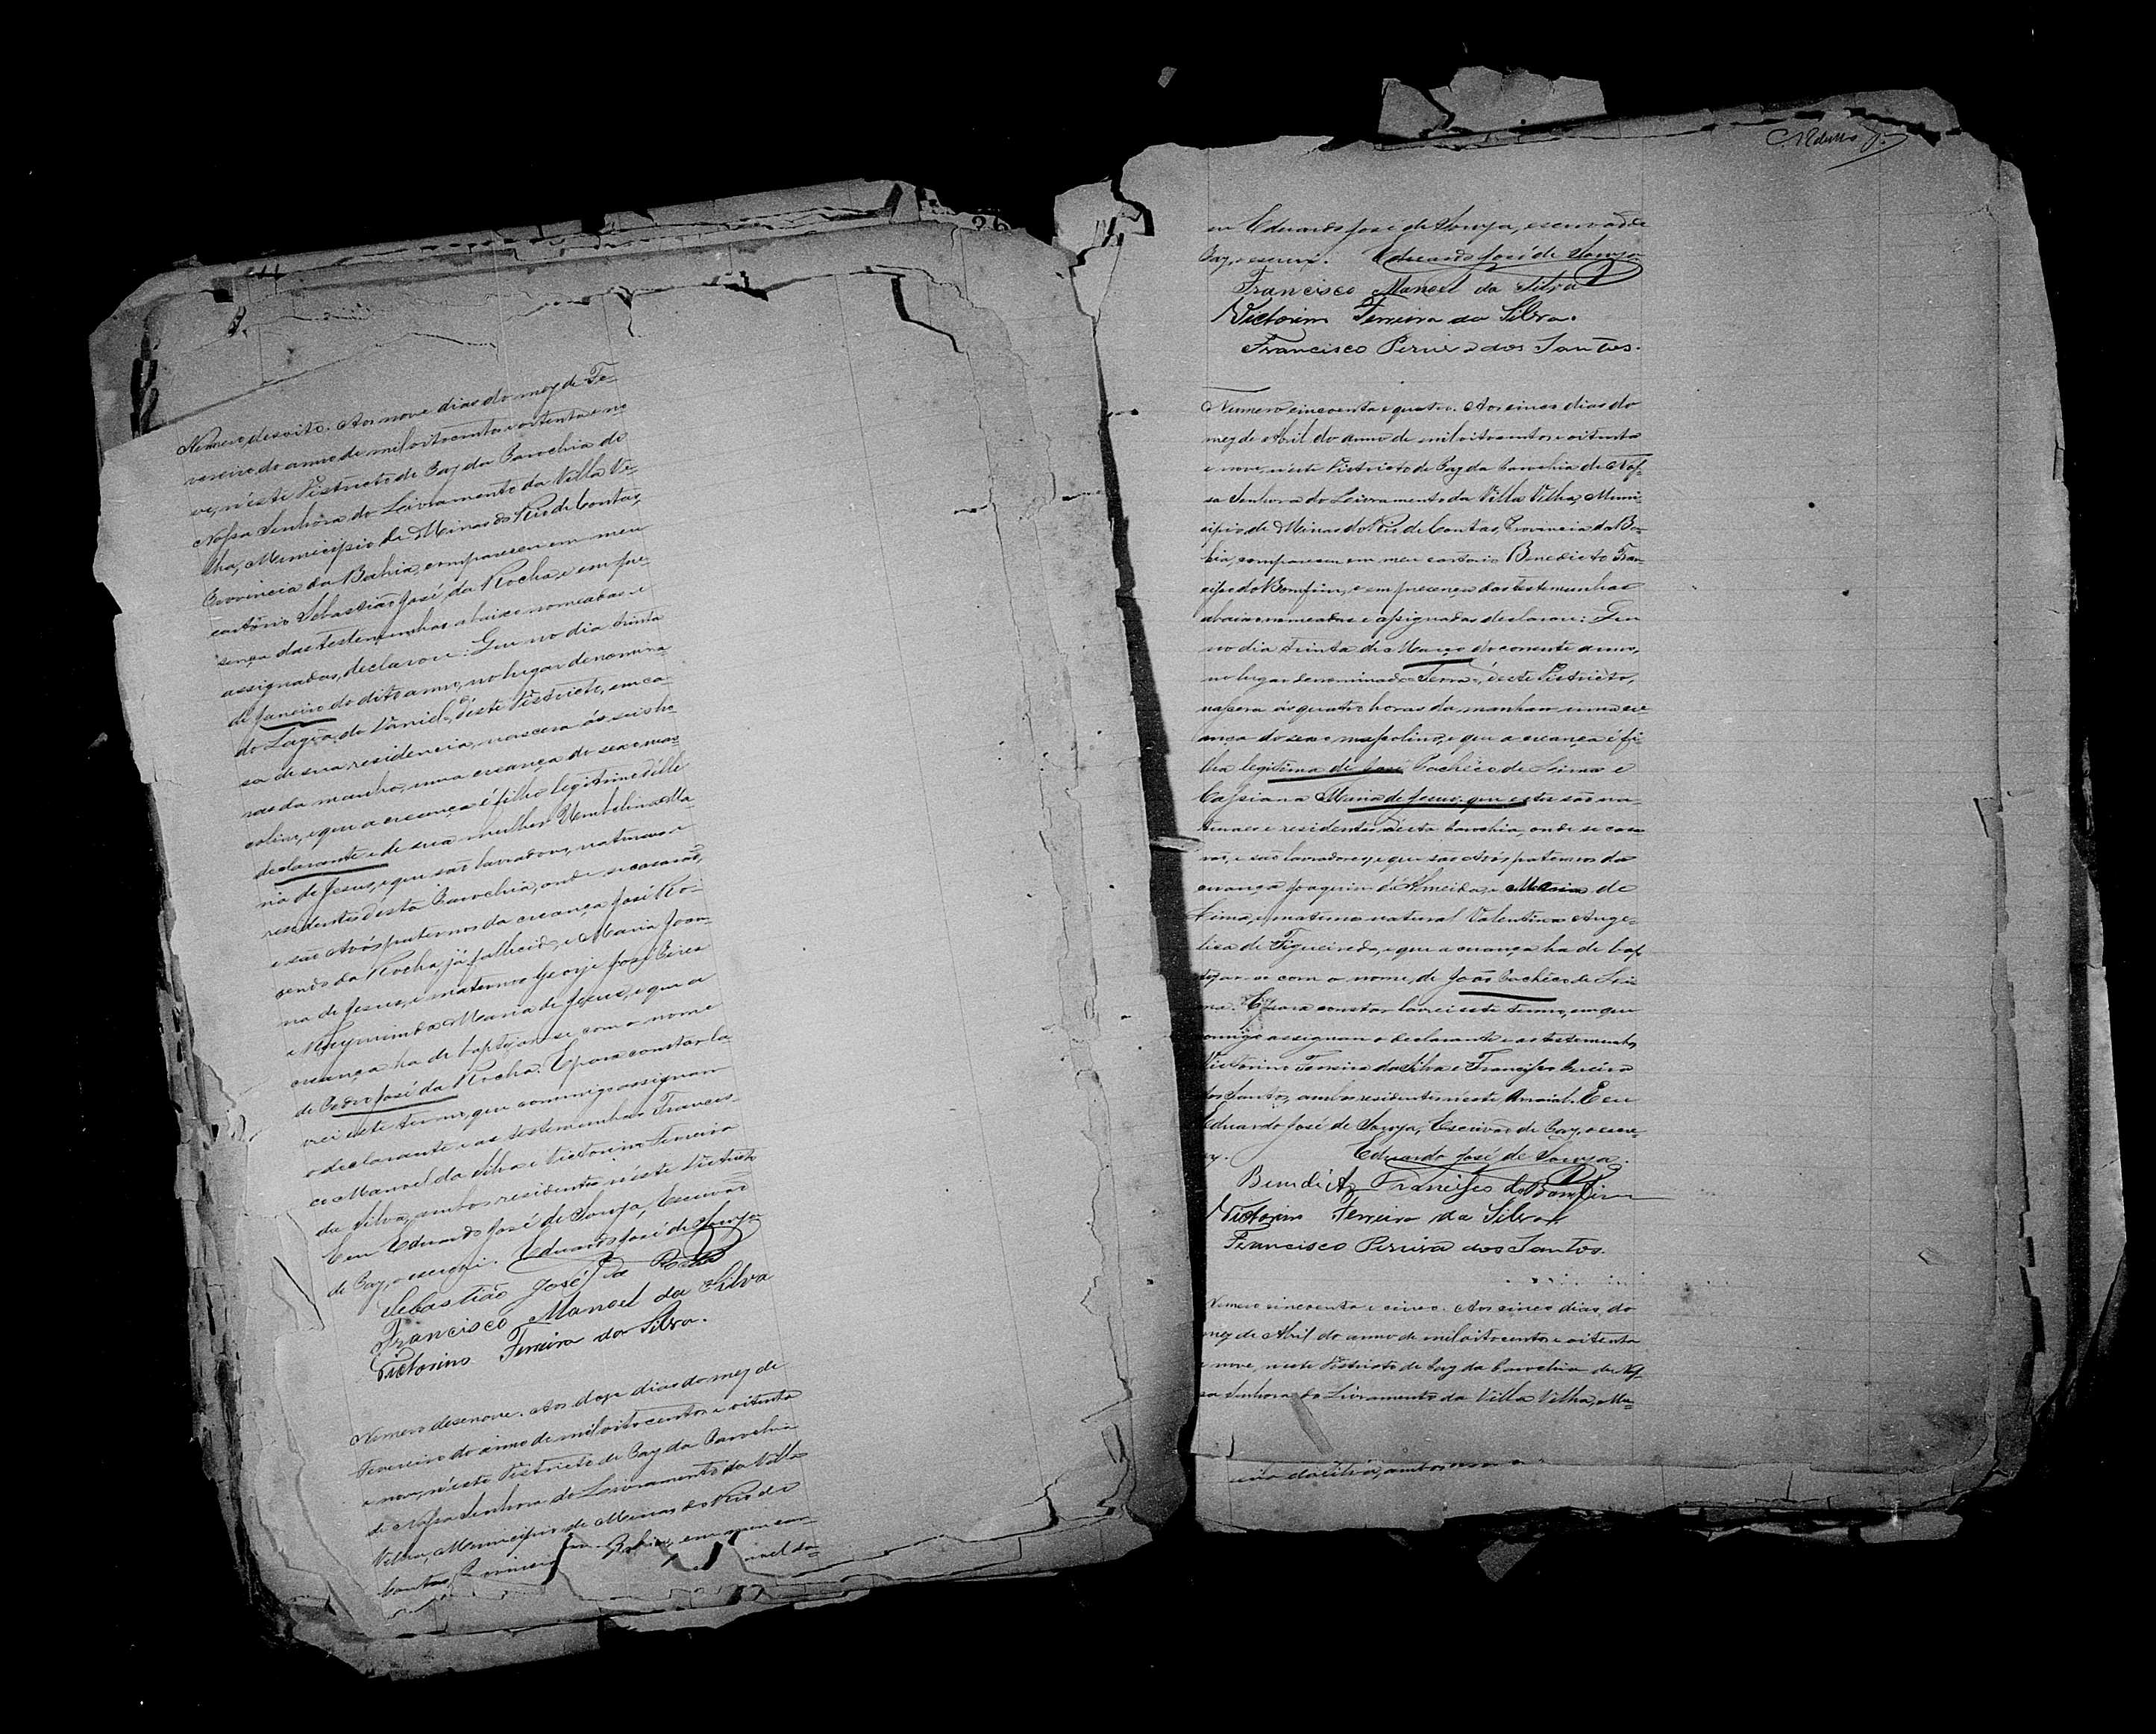 26
Numero desoito. Aos nove dias do mez de Fe-
vereiro do anno de mil oitocentos e oitenta e no
ve, n'este Districto de Paz da Parochia de
Nossa Senhora do Livramento da Villa Ve-
lha, Municipio de Minas do Rio de Contas,
Provincia da Bahia, compareceu em meu
cartorio Sebastião José da Rocha, e em pre-
sença das testemunhas abaixo nomeadas e
assignadas, declarou: Que no dia trinta
de Janeiro do dito anno, no lugar denomina-
do Lagôa do Daniel, d'este Districto, em ca-
sa de sua residencia, nascera ás seis ho
ras da manhã, uma creança do sexo mas-
colino, e que a creança é filho legitimo d'elle
declarante e de sua mulher Umbelina Ma-
ria de Jesus, e que são lavradores, naturaes e
residentes d'esta Parochia, onde se casarão,
e são Avós paternos da creança José Ro-
sendo da Rocha, já fallecido, e Maria Joan-
na de Jesus, e maternos George José Pires
e Raymunda Maria de Jesus, e que a
creança ha de baptizar-se com o nome
de Pedro José da Rocha. E para constar la-
vrei este termo, que commigo assignam
o declarante e as testemunhas Francis-
co Manoel da Silva e Victorino Ferreira
da Silva, ambos residentes n'este Districto
E eu Eduardo José de Souza, Escrivão
de Paz, o escrevi. Eduardo José de Souza
Sebastião José da Rocha
Francisco Manoel da Silva
Victorino Ferreira da Silva.
Numero desenove. Aos doze dias do mez de
Fevereiro do anno de mil oitocentos e oitenta
e nove, n'este Districto de Paz da Parochia
de Nossa Senhora do Livramento da Villa
Velha, Municipio de Minas do Rio de
Contas, Provincia da Bahia, em meu car-
noel da
eu Eduardo José de Souza, escrivão de
Paz, o escrevi. Eduardo José de Souza
Francisco Manoel da Silva
Victorino Ferreira da Silva.
Francisco Pereira dos Santos.
Numero cincoenta e quatro. Aos cinco dias do
mez de Abril do anno de mil oitocentos e oitenta
e nove, n'este Districto de Paz da Parochia de Nos-
sa Senhora do Livramento da Villa Velha, Muni-
cipio de Minas do Rio de Contas, Provincia da Ba-
hia, compareceu em meu cartorio Benedicto Fran-
cisco do Bomfim, e em presença das testemunhas
abaixo nomeadas e assignadas declarou: Que
no dia trinta de Março do corrente anno,
no lugar denominado Serra, d'este Districto,
nascera ás quatro horas da manhan uma cre-
ança do sexo mascolino, e que a creança é fi-
lha legitima de José Pacheco de Lima e
Cassiana Maria de Jesus, que estes são na-
turaes e residentes d'esta Parochia, onde se casa
rão, e são lavradores, e que são Avós paternos da
creança Joaquim d'Almeida e Maria de
Lima, e materna natural Valentina Ange-
lica de Figueiredo, e que a creança ha de bap-
tizar-se com o nome de João Pacheco de Li-
ma. E para constar lavrei este termo, em que
commigo assignam o declarante e as testemunhas
Victorino Ferreira da Silva e Francisco Pereira
dos Santos, ambos residentes n'este Arraial. E eu
Eduardo José de Souza, Escrivão de Paz, o escre-
vy. Eduardo José de Souza.
Benedicto Francisco do Bomfim
Victorino Ferreira da Silva
Francisco Pereira dos Santos.
Numero cincoenta e cinco. Aos cinco dias do
mez de Abril do anno de mil oitocentos e oitenta
e nove, n'este Districto de Paz da Parochia de Nos-
sa Senhora do Livramento da Villa Velha, Mu-
da Silva, ambos